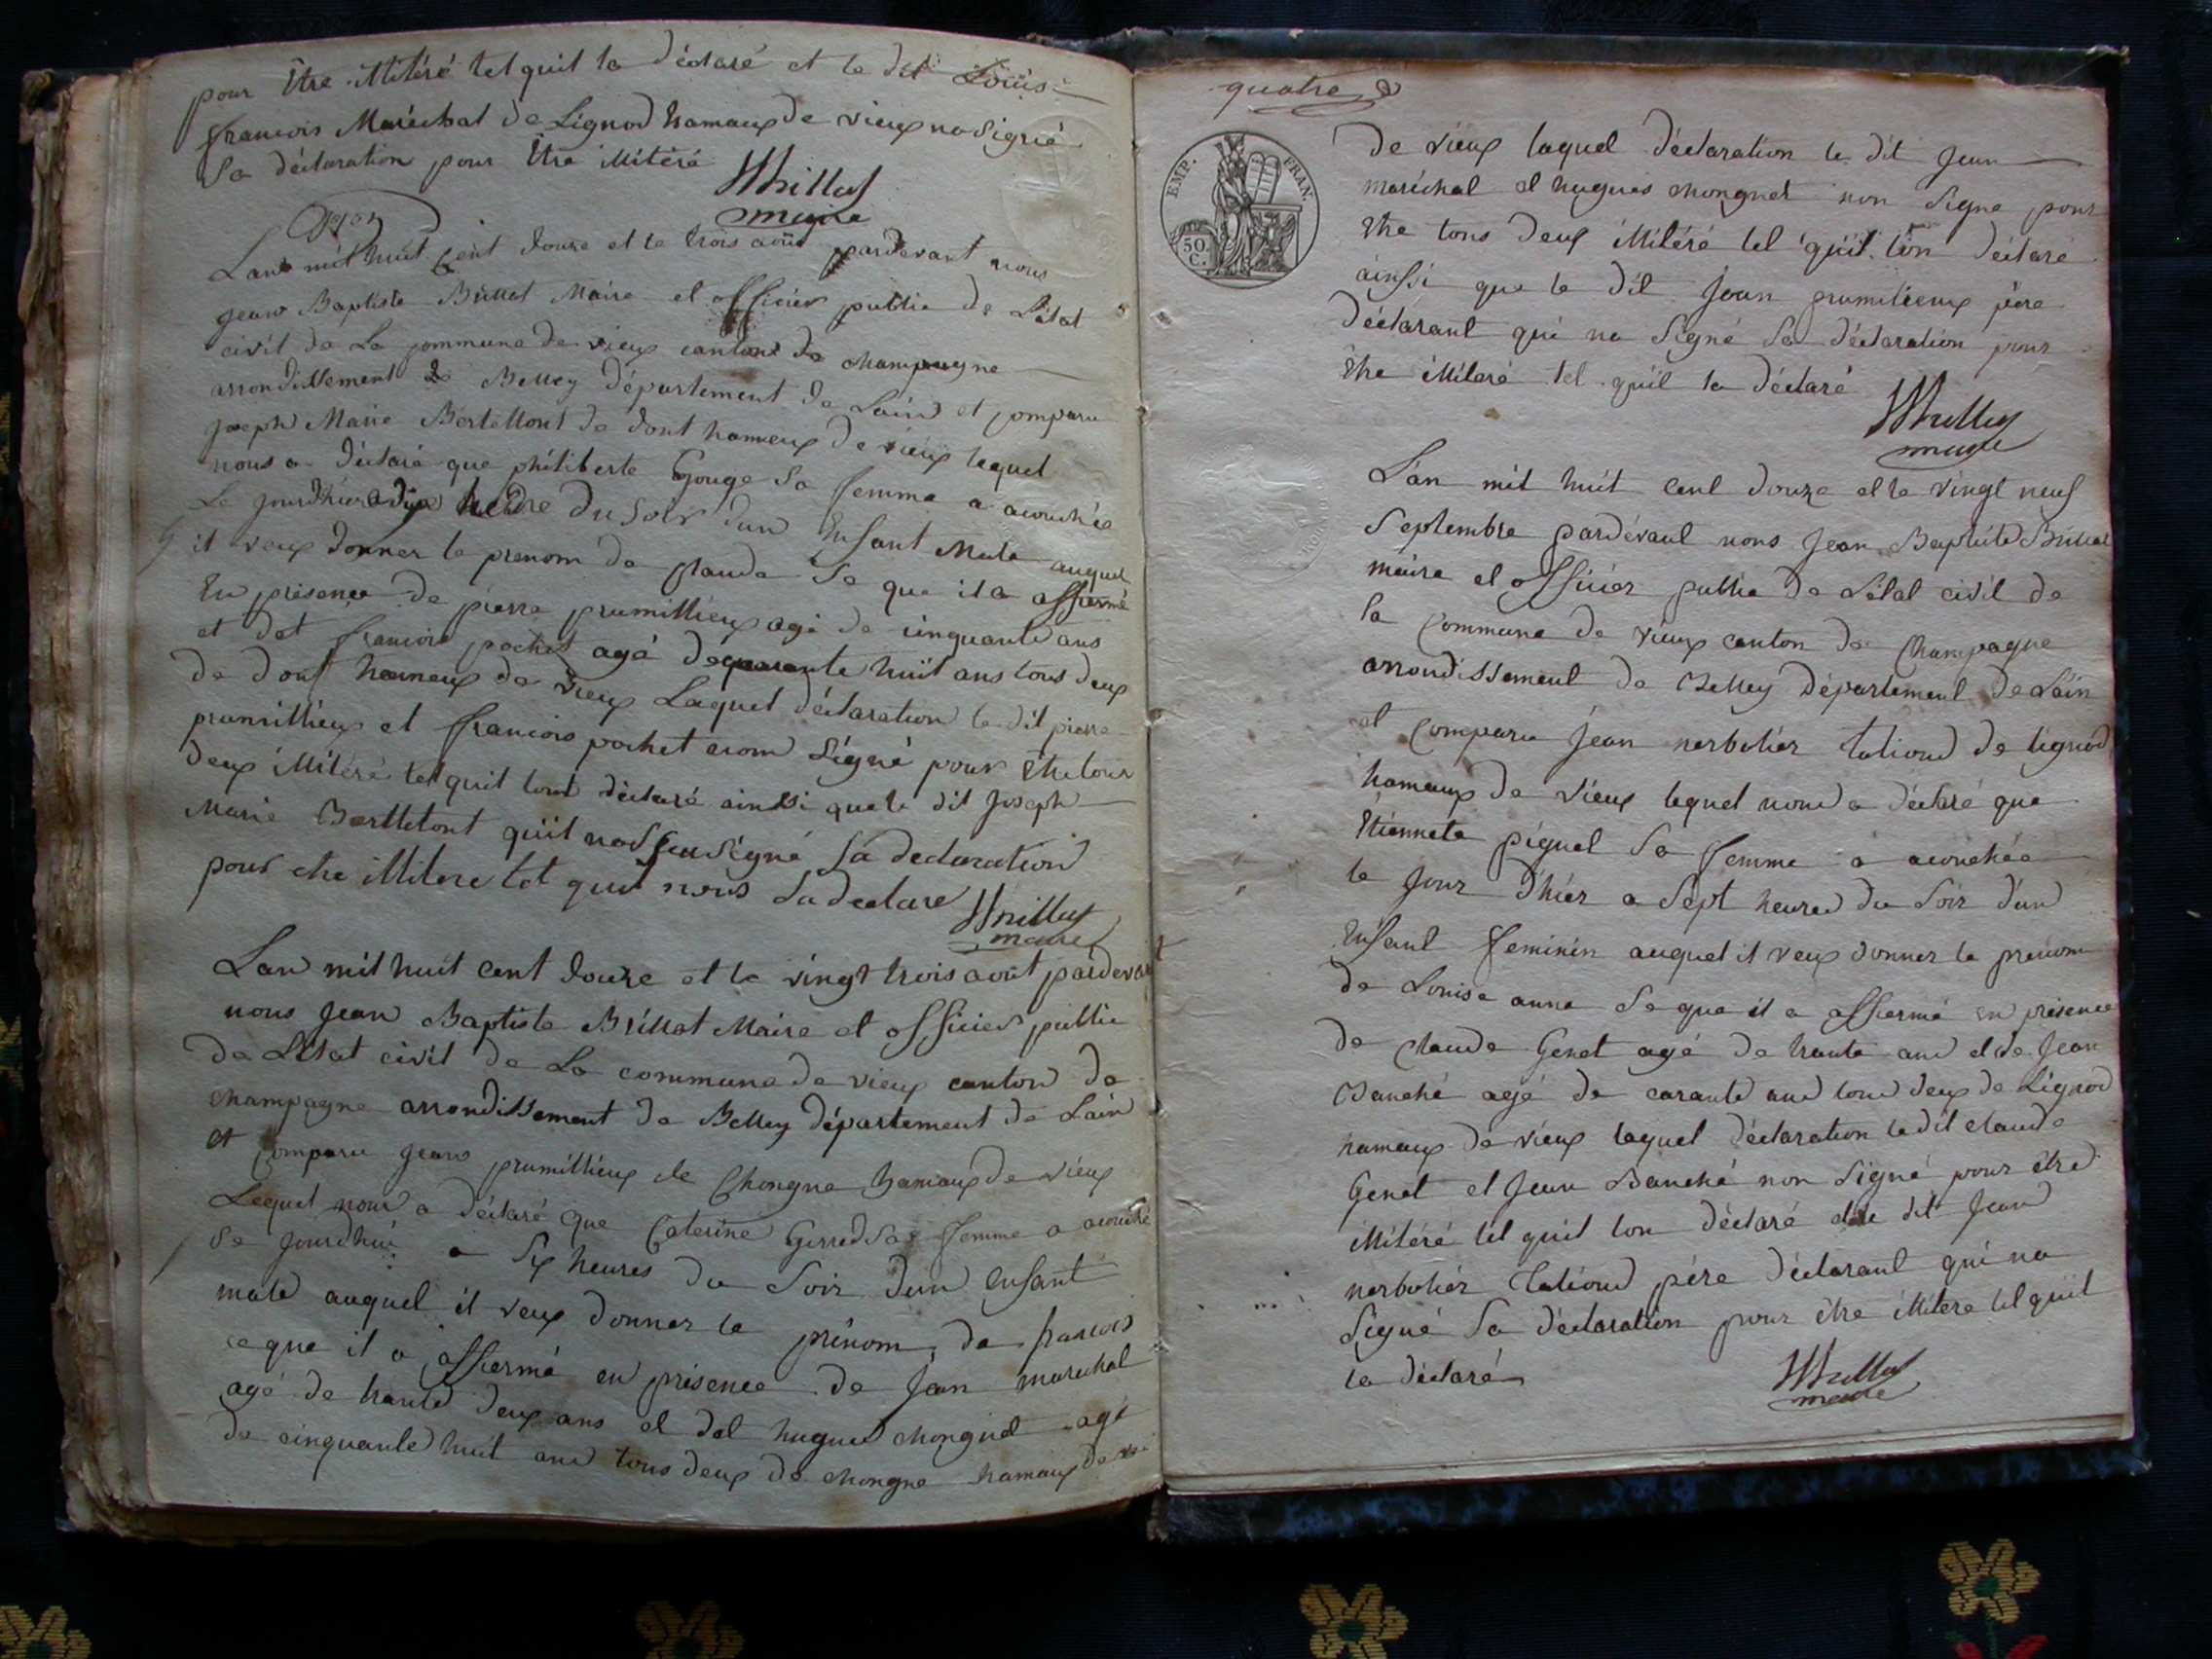 pour Etre illitéré tel quil la déclaré et le dit Louis
francois Maréchal de Lignod hamaux de vieux na Signié
Sa déclaration pour Etre illitéré
maire
Lans mil huit cent douze et le trois août pardevant nous
jean Baptiste Brillat Maire et officier public de Létat
civil de La commune de vieux canton de champagne
arrondissement de Belley département de Lain et comparu
joseph Marie Bertellont de dont hameux de vieux lequel
nous a déclaré que philiberte Gouge Sa femme a acouchée
Le jourdhier a dix heure du Soir dun Enfant Male auquel
il veux donner le prenom de claude Se que il a affiermé
En présence de pierre prumillieux agé de cinquante ans
et det francois pochet agé de quarante huit ans tous deux
de dont hameux de vieux Laquel déclaration le dit pierre
prumillieux et francois pochet nom Signé pour Etre tous
deux illitéré tel quil lont déclaré ainssi que le dit joseph
Marie Bertletont quil na Signé Sa declaration
pour etre illitere tel quil nous La declare
maire
Lan mil huit cent douze et le vingt trois août pardevant
nous jean Baptiste Brillat Maire et officier public
de Létat civil de La commune de vieux canton de
champagne arrondissement de Belley département de Lain
et comparu jean prumillieux de Chongne hamaux de vieux
Lequel nous a déclaré que Caterine Gerred Sa femme a acouché
Se jourdhui a Six heures du Soir dun Enfant
male auquel il veux donner le prénom de francois
ce que il a affiermé en présence de jean marechal
agé de trante deux ans et det hugues chongnet agé
de cinquante huit ans tous deux de chongne hamaux de
quatre
EMP. FRAN.
50 C.
de vieux laquel déclaration le dit jean
maréchal et hugues chongnet non Signe pour
Etre tous deux illitéré tel quil lon déclaré
ainssi que le dit jean prumilieux pére
déclarant qui na Signé Sa déclaration pour
Etre illiteré tel quil la déclaré
maire
L'an mil huit cent douze et le vingt neuf
Septembre pardévant nous jean Baptiste Brillat
maire et officier public de Létat civil de
la commune de vieux canton de Champagne
arrondissement de Belley département de Lain
et comparu jean norbotier taliond de lignod
hamaux de vieux lequel nous a déclaré que
Etiennete piquel Sa femme a acouchée
le jour d'hiér a Sept heures du Soir d'un
Enfant feminin auquel il veux donner le prénom
de Louise anne Se que il a affiermé en présence
de claude Genet agé de trante ans et de jean
Banché agé de carante ans tous deux de Lignod
hamaux de vieux laquel déclaration le dit claude
Genet et jean Banché non Signé pour être
illitéré tel quil lon déclaré et le dit jean
norbotiér taliond pére déclarant qui na
Signé Sa déclaration pour être illitere tel quil
la déclaré
maire